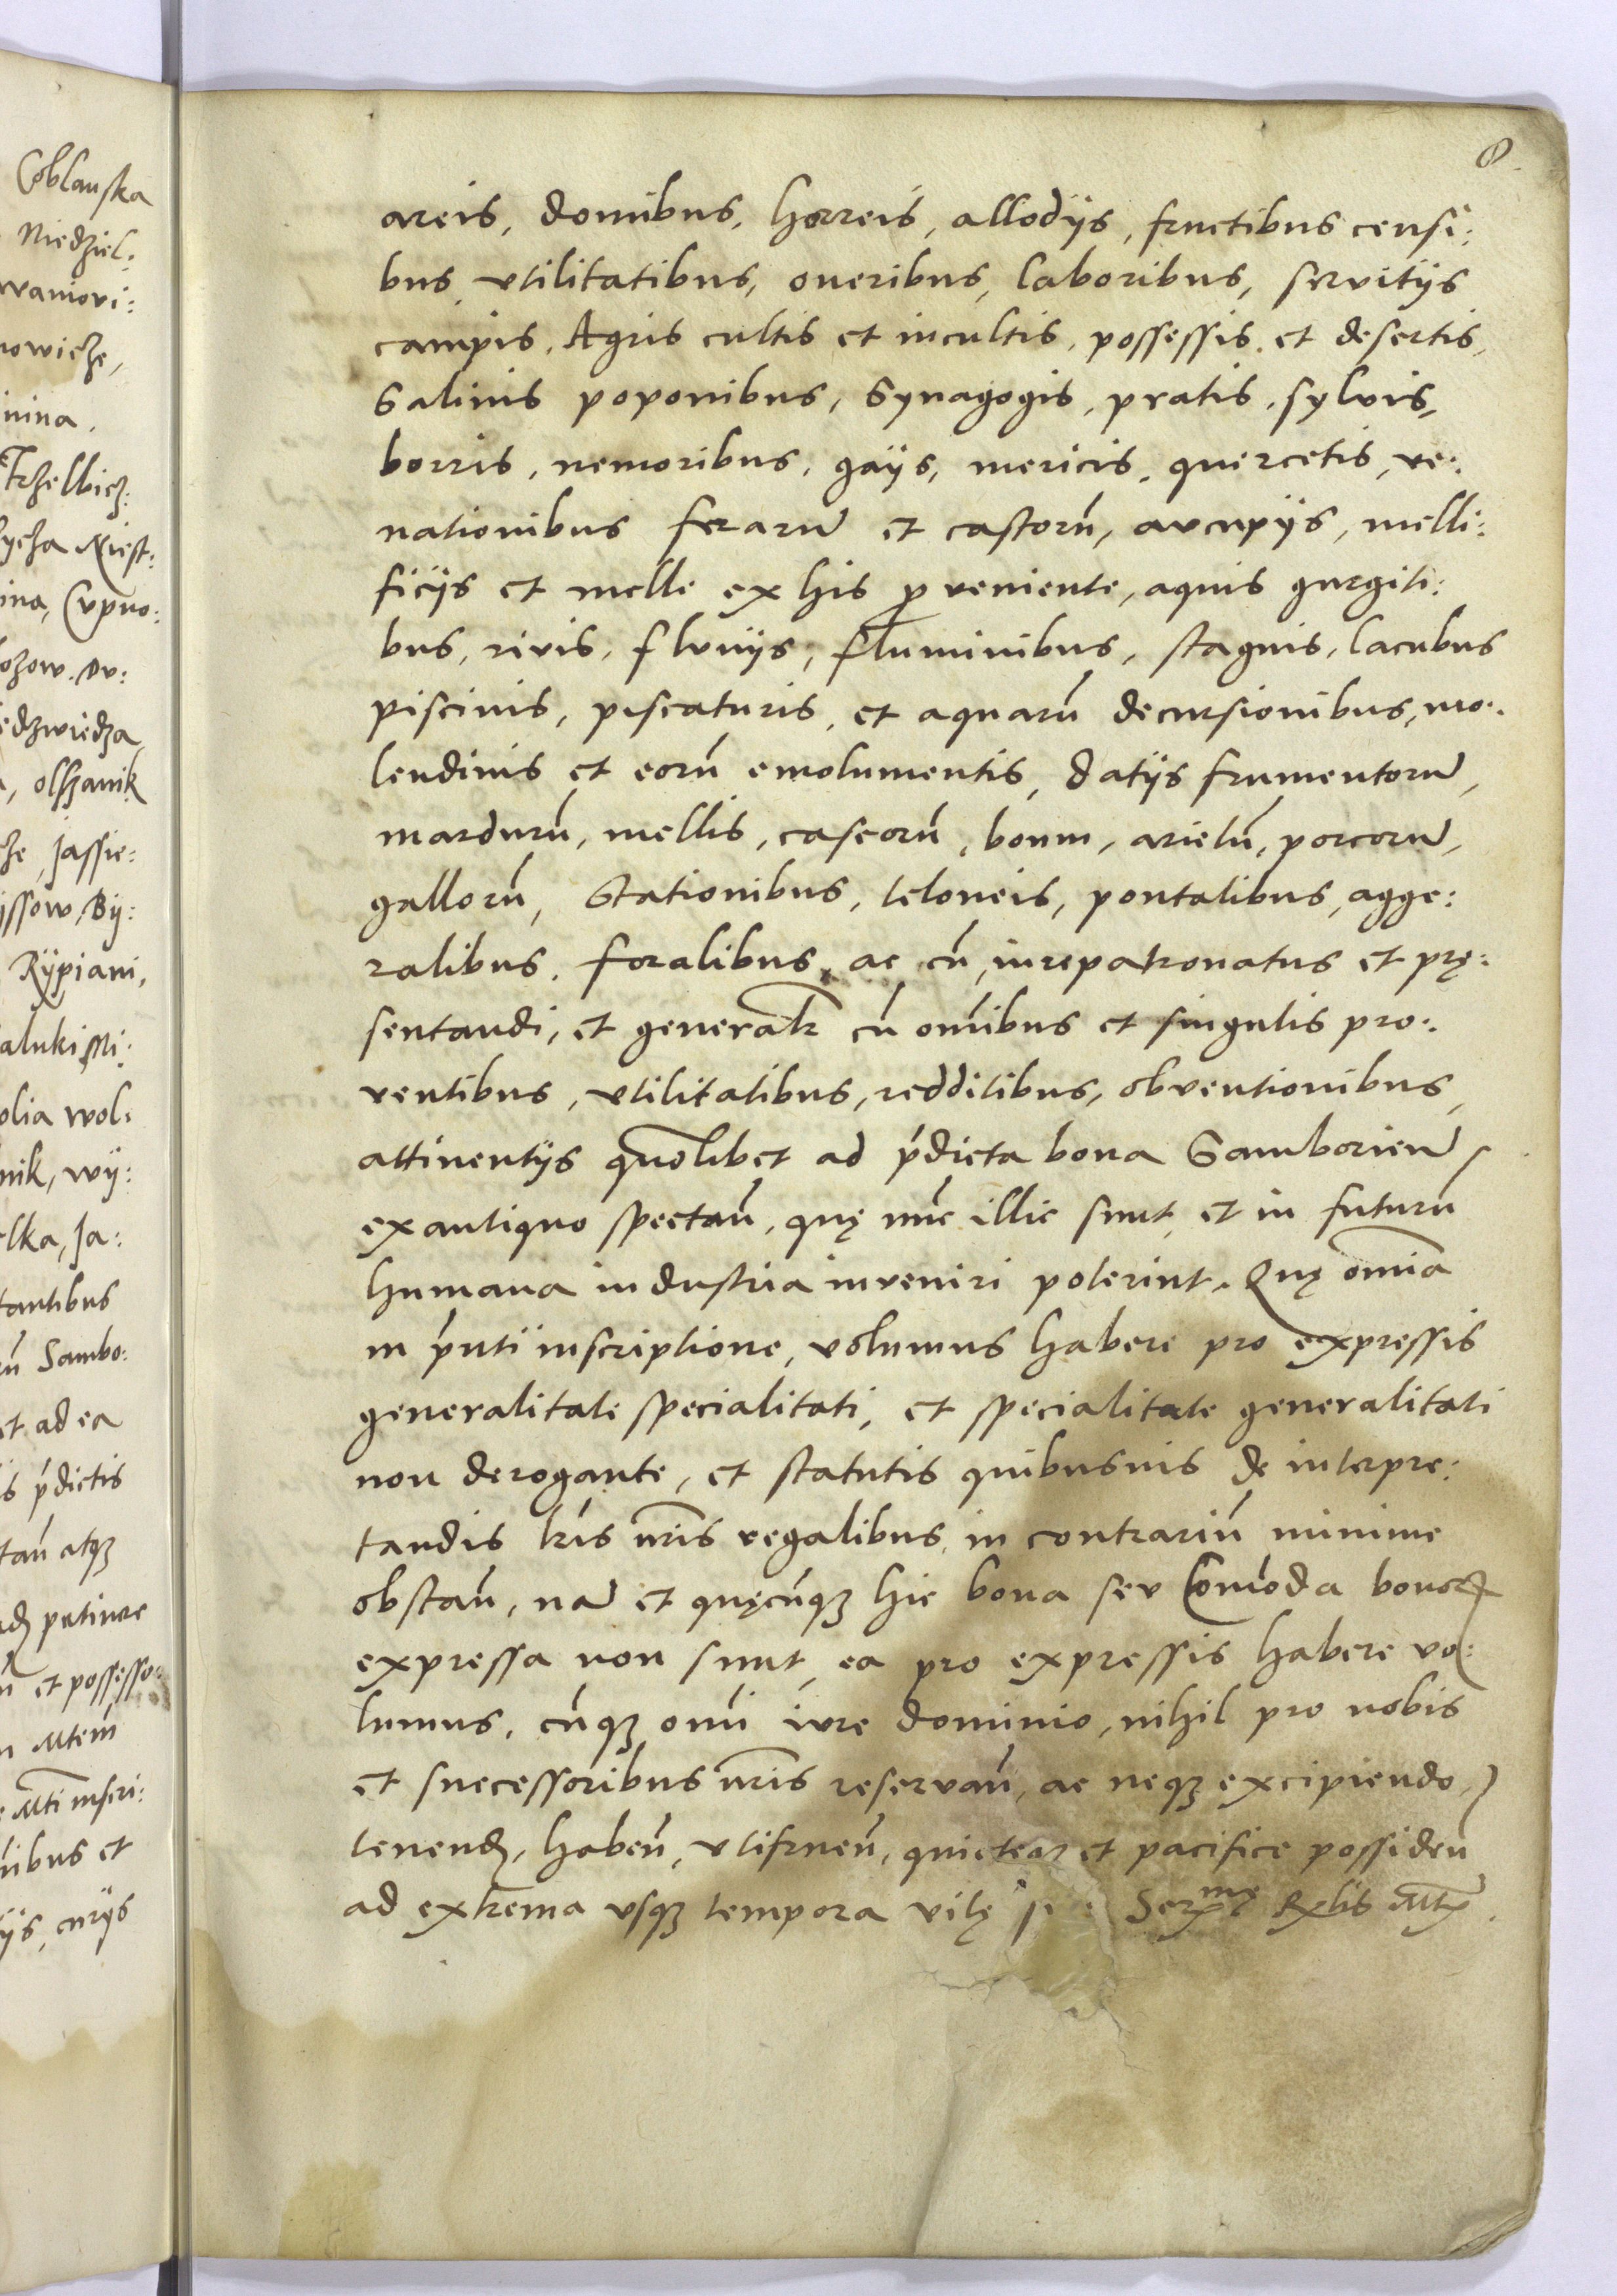 Coblanska
Niedziel:
waniovi:
nowicze,
inina,
Trzelbicz
ycha Miest:
ina, Cvpno:
ozow. Dv:
edzwiedza,
, olszanik
che, Jassie:
yssow, By:
Rÿpiani,
aluki, Mi:
olia wol:
nik, wÿ:
elka, Ja:
tantibus
rū Sambo:
et ad ea
is ṕdictis
tań atqȝ
ptinere
et possesso:
Mtem
Mti inscri:
nibus et
ijs, curijs
8
areis, domibus, horreis, allodijs, fructibus censi:
bus, vtilitatibus, oneribus, laboribus, servitijs
campis, Agris cultis et incultis, possessis, et desertis,
Salinis poponibus, Synagogis, pratis, sylvis,
borris, nemoribus, gaijs, mericis, quercetis, ve:
nationibus ferarū et castorū, avcupijs, melli:
ficijs et melle ex his ꝓveniente, aquis gurgiti:
bus, rivis, flvuijs, fluminibus, stagnis, lacubus
piscinis, piscaturis, et aquarū decursionibus, mo:
lendinis et eorū emolumentis, datijs frumentorū,
mardurū, mellis, caseorū, boum, arietū, porcorū,
gallorū, Stationibus, teloneis, pontalibus, agge:
ralibus, foralibus, ac cū iurepatronatus et prę:
sentandi, et generalr cū om̄ibus et singulis pro:
ventibus, vtilitatibus, redditibus, obventionibus,
attinentijs quōlibet ad ṕdicta bona Samborień
ex antiquo spectań, quę nūc illic sunt, et in futurū
humana industria inveniri poterint. Quę om̄ia
in ṕnti inscriptione, volumus habere pro expressis
generalitate specialitati, et specialitate generalitati
non derogante, et statutis quibusuis de interpre:
tandis lris nr̄is regalibus in contrariū minime
obstań, nā et quęcūqȝ hic bona sev Com̄oda bonoꝝ
expressa non sunt, ea pro expressis habere vo:
lumus, cūqȝ om̄i ivre dominio, nihil pro nobis
et successoribus nr̄is reservań, ac neqȝ excipiendo,
tenend, habeń, vtifrueń, quiete et pacifice possideń
ad extrema vsqȝ tempora vitę Sermę Rglis Mtis